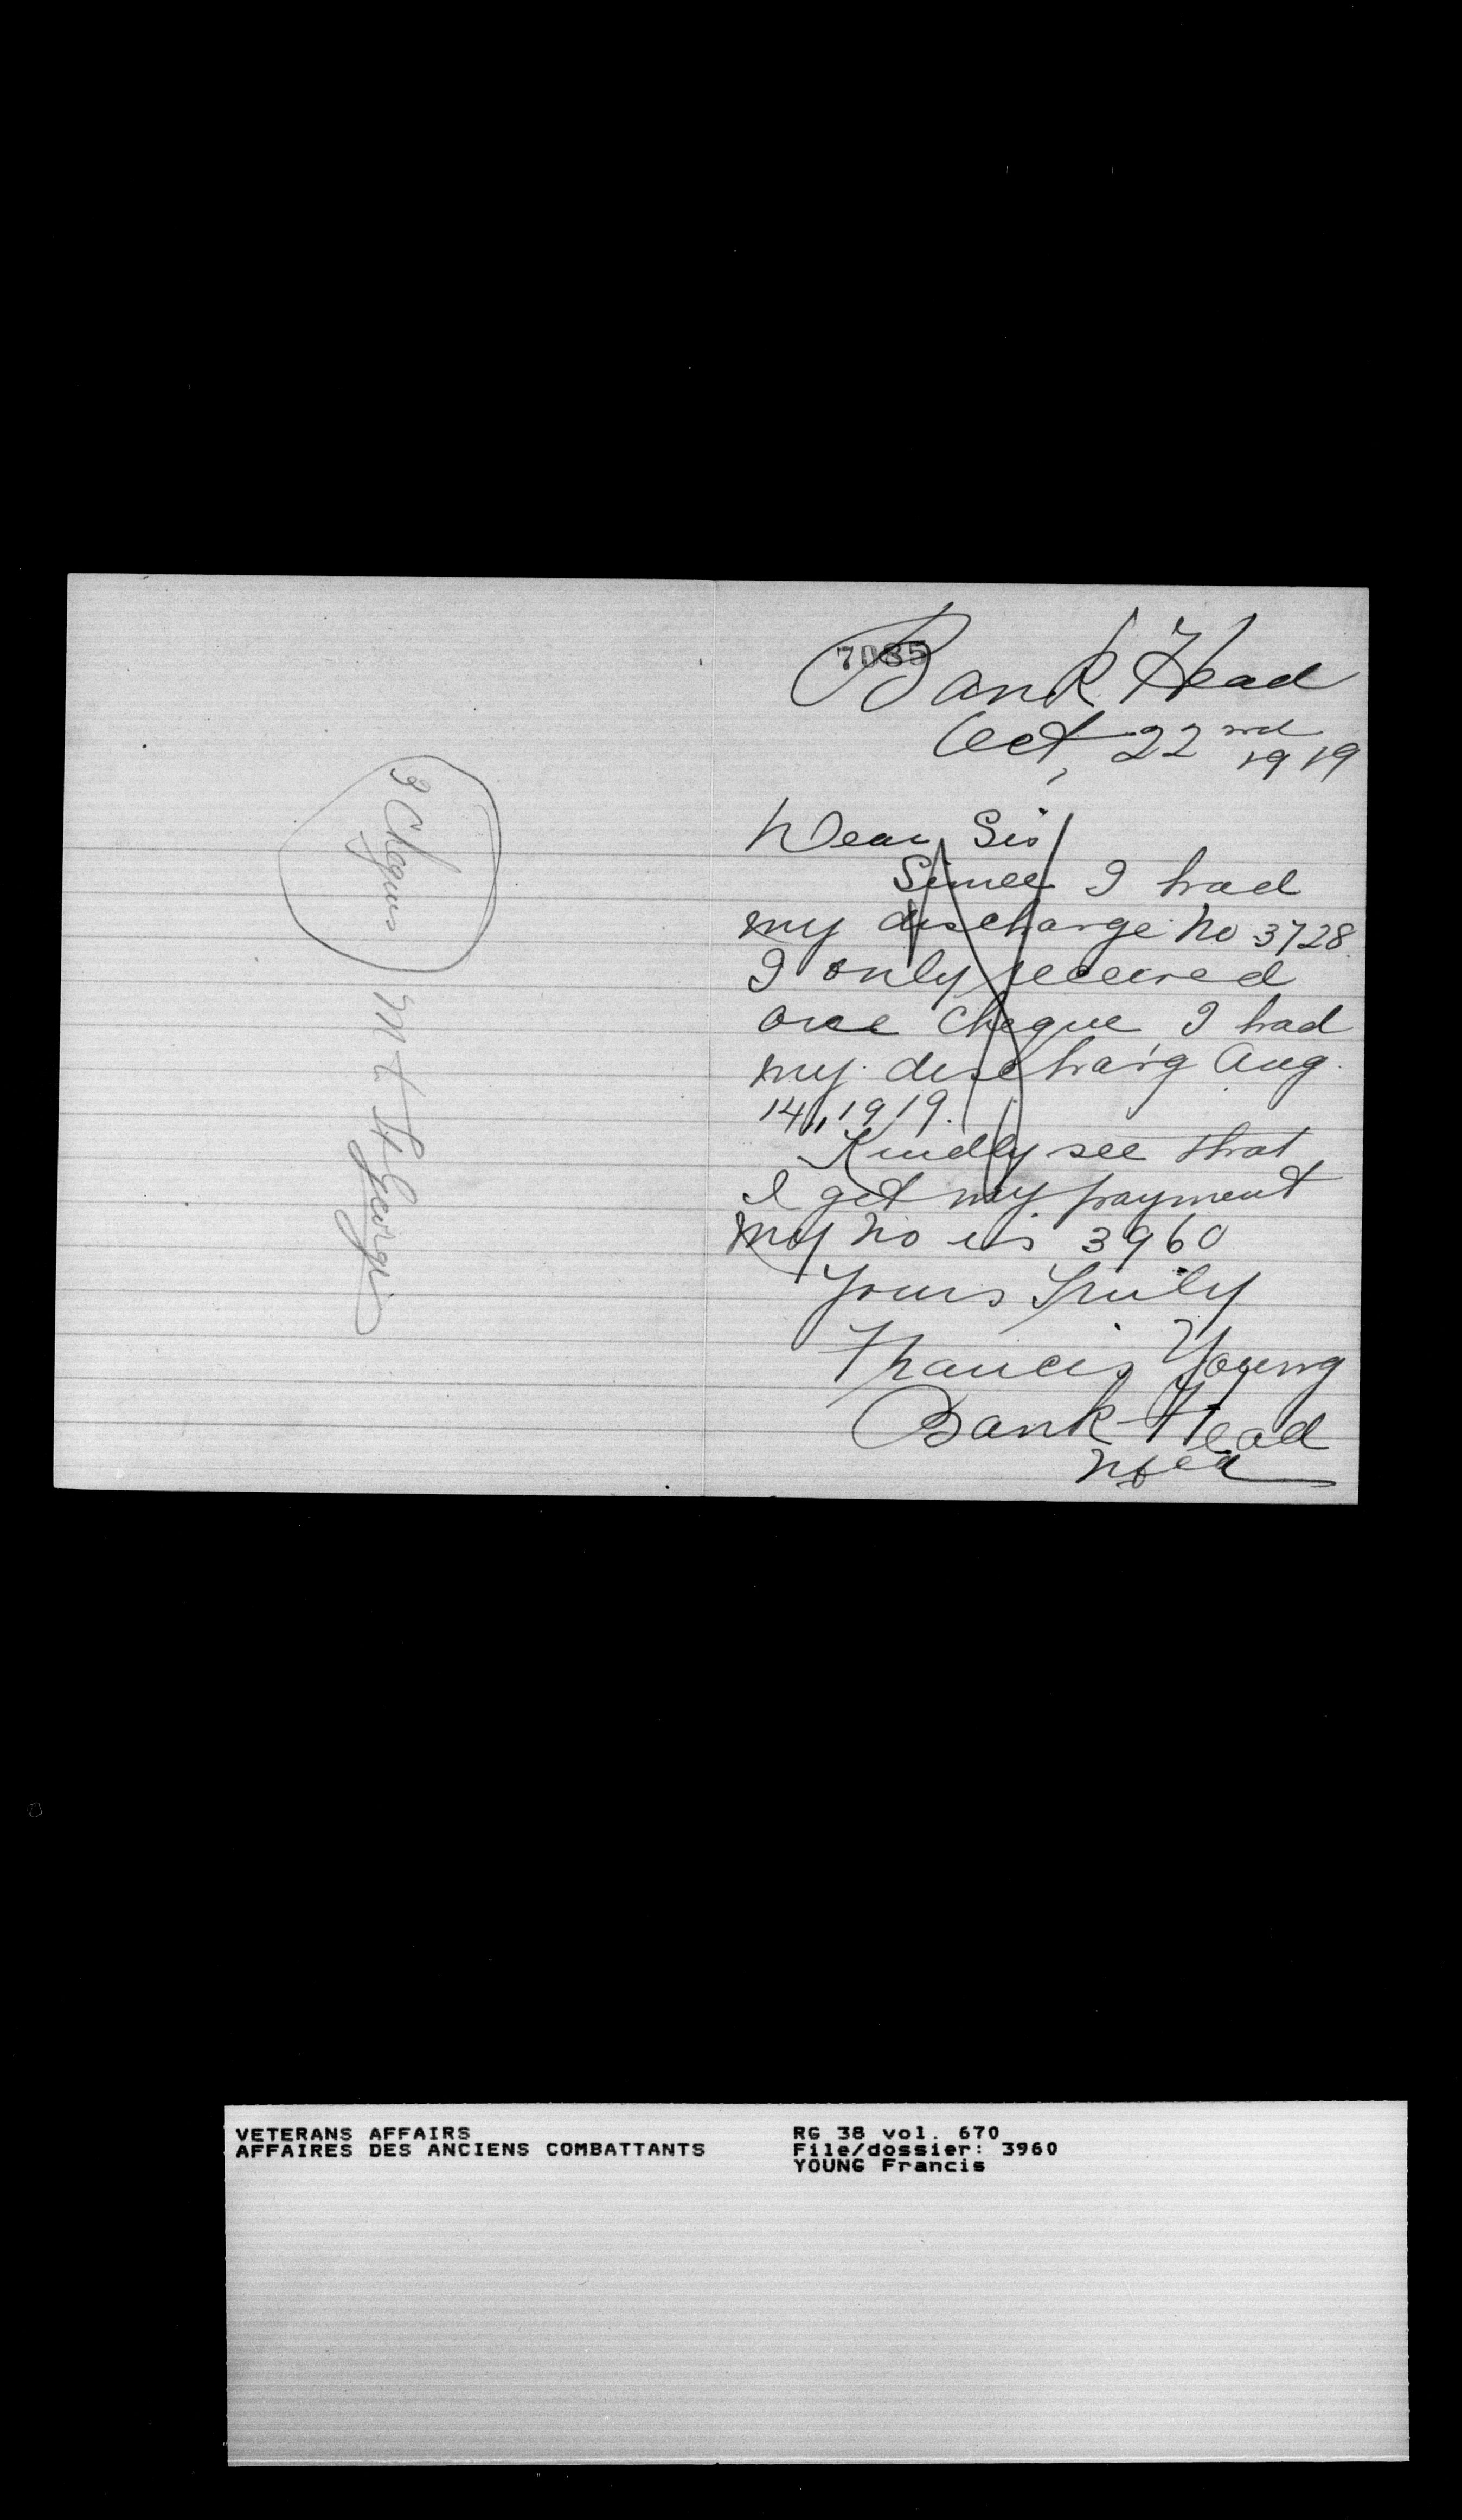 7085
Bank Head
Oct, 22nd 1919
Dear Sir
Since I had
my discharge no 3728
I only received
one cheque I had
my discharg Aug.
14,, 1919.
Kindly see that
I get my payment
my no is 3960
Yours Truly
Francis Young
Bank Head
Nfld
Cheques
St Georges
VETERANS AFFAIRS
AFFAIRES DES ANCIENS COMBATTANTS
RG 38 vol. 670
File/dossier: 3960
YOUNG Francis